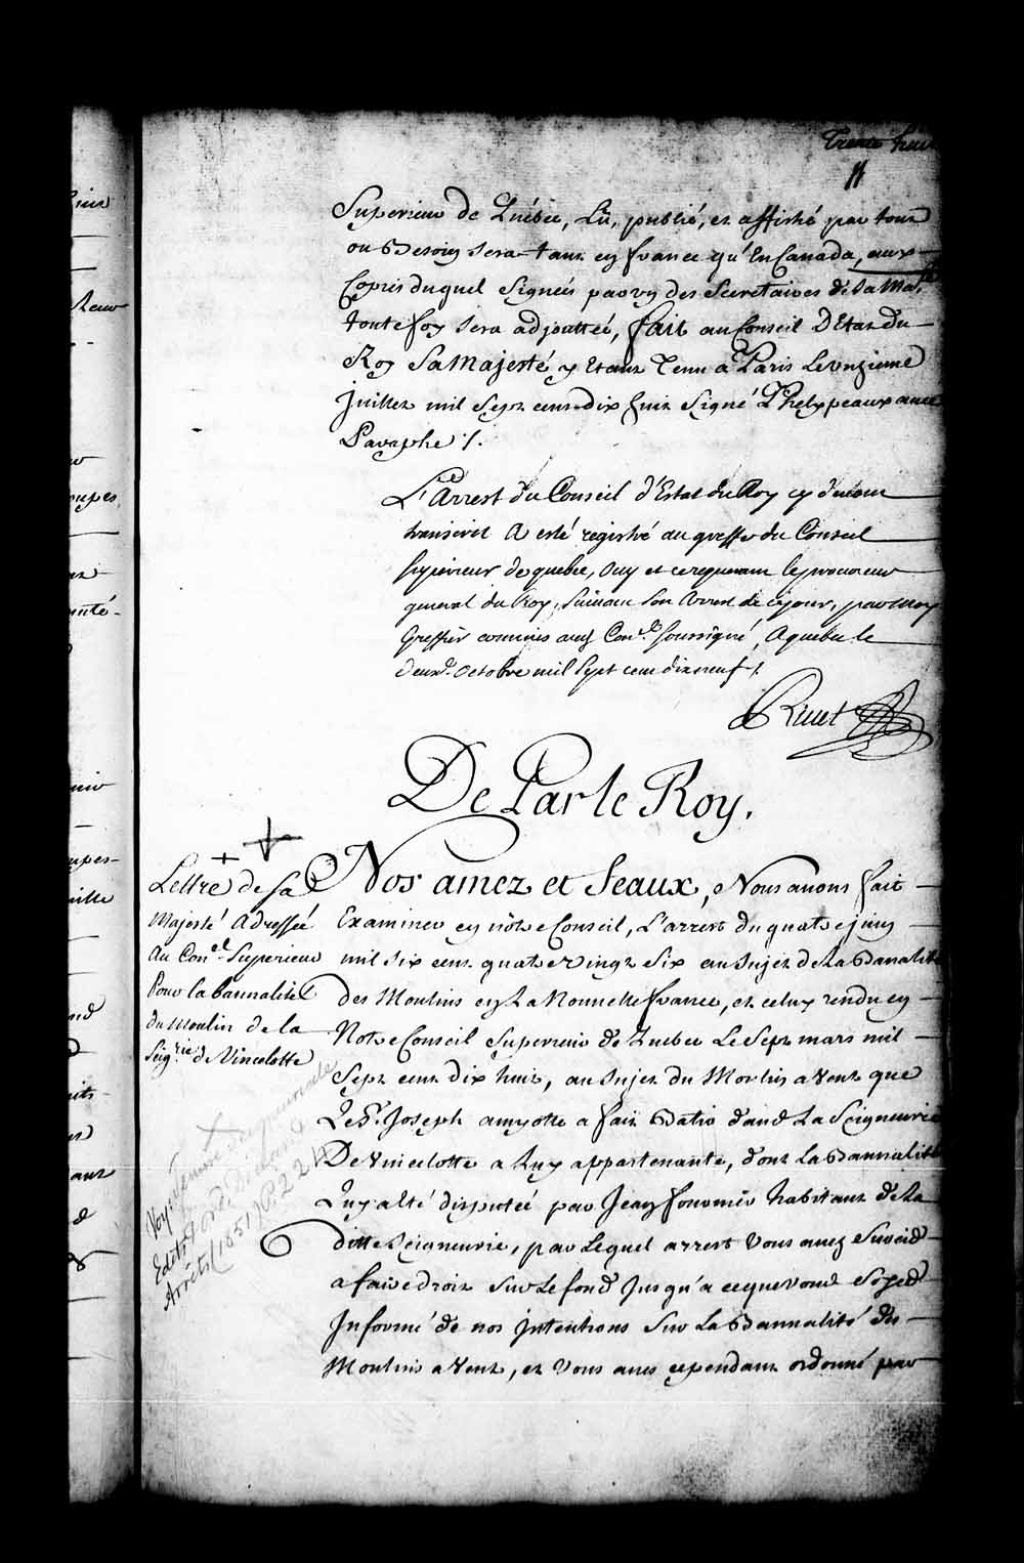 Trente huit
Superieur de Québec, Lû, publié, et affiché par tout
ou Besoin sera tant en france qu'En Canada, aux
Copies duquel Signées par un des Secretaires de Sa Mad.té
foy sera adjoutée, fait au Conseil D'Etat du
Roy Sa Majesté y Etant Tenu a Paris Le unzieme
Juillet mil Sept cens dix huit Signé Phelypeaux avec
Paraphe /.
L'Arrest du Conseil d'Estat du Roy cy dessus
transcrit A esté registré au greffe du Conseil
superieur de quebec, ouy et ce requerant le procureur
general du Roy, suivant son Arrest de ce jour, par moy
Greffier commis aud Con.el soussigné, A quebec le
deux.e octobre mil Sept cent dix neuf /.
Rivet
De Par le Roy.
Lettre de Sa
Majesté Adressée
Au Con.el Superieur
Pour la bannalité
du Moulin de la
Seig.rie de Vincelotte
Nos amez et feaux, Nous avons fait
Examiner en nôtre Conseil, L'arrest du quatre juin
mil six cens quatre vingt six au sujet de la Banalité
des Moulins en La Nouvelle france, et celuy rendu en
Notre Conseil Superieur de Quebec Le Sept mars mil
Sept cens dix huit, au sujet du Moulin a Vent que
Le S.r Joseph amyotte a fait Batir dans La Seigneurie
De Vincelotte a Luy appartenante, dont La Bannalité
Luy a été disputée par Jean fournier habitant de la
ditte Seigneurie, par Lequel arrest Vous avez Surcid
a faire droit Sur Le fond Jusqu'a ce que vous Soyed
Informé de nos Intentions Sur La Bannalité des
Moulins a Vent, et Vous aves cependant ordonné par
Voy:
Edits & Ord:
Arrêts (1851) P. 224